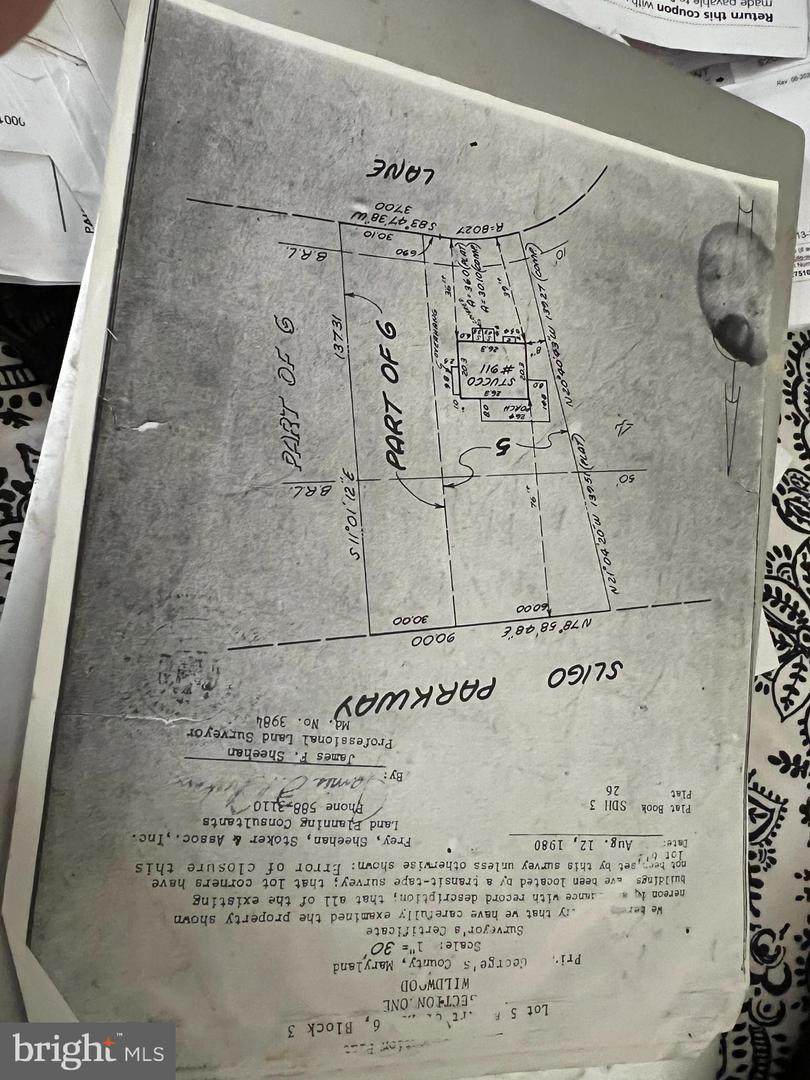 Lot 5 &
6, Block 3
SECTION ONE
WILDWOOD
George's County, Maryland
Scale: 1"= 30'
Surveyor's Certificate
We that we have carefully examined the property shown
hereon with record description; that all of the existing
buildings have been located by a transit-tape survey; that lot corners have
not been set by this survey unless otherwise shown: Error of closure this
lot
Date: Aug. 12, 1980
Frey, Sheehan, Stoker & Assoc., Inc.
Land Planning Consultants
Phone 588-3110
Plat Book SDH 3
Plat 26
By:
James F. Sheehan
Professional Land Surveyor
Md. No. 3984
SLIGO PARKWAY
N78°58'48"E
90.00
60.00
30.00
N21°04'20"W 139.51 (PLAT)
N20°40'43"W 139.27 (COMP)
S11°01'12"E
137.31
76'±
50'
B.R.L.
5
4
PART OF 6
PART OF 6
PORCH
26.3
STUCCO
#911
20.3
20.2
26.3
OVERHANG
36'±
39'±
A=36.0 (PLAT)
A=30.10 (COMP)
10'
B.R.L.
6.90
30.10
R=80.27
S83°47'38"W
37.00
LANE
Return this coupon with
made payable
bright MLS